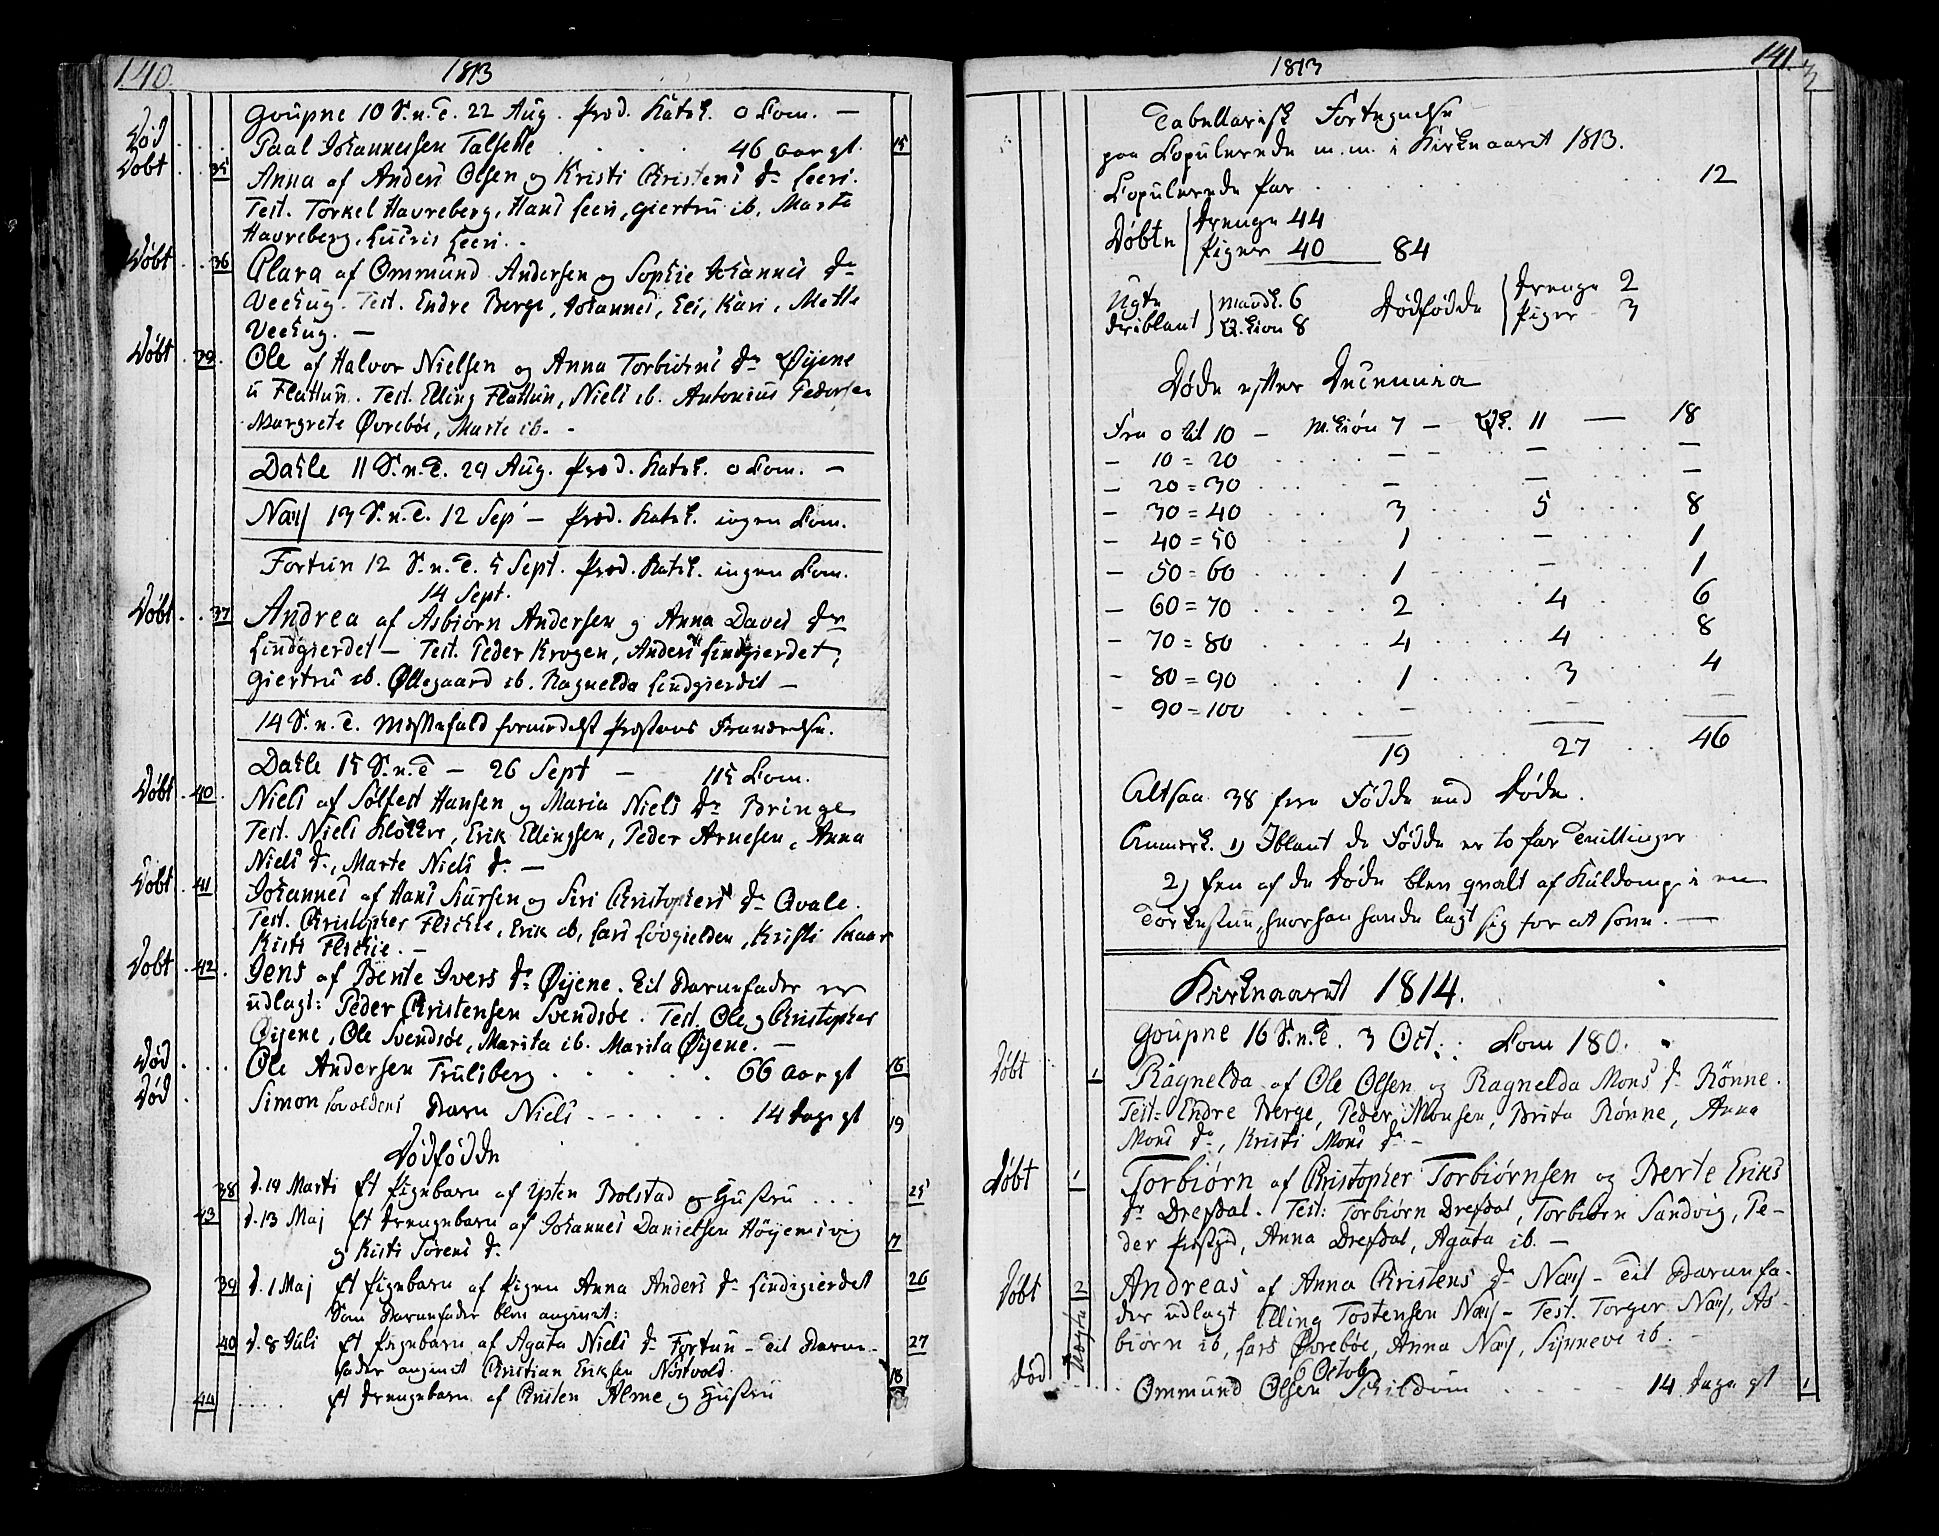 140. 1813
Goupne 10 S. n. T. 22 Aug. Præd. Katek. 0 Com. —
Død Paal Johannessen Talsette 46 aar gl. 15
Døbt 35 Anna af Anders Olsen og Kristi Kristens Dr Leeri.
Test. Torkel Havreberg, Hans Leeri, Giertru ib. Marta
Havreberg, Leeri.
Døbt 36 Clara af Ommund Andersen og Sophie Johannes Dr
Veehug. Test. Endre Berge, Johannes, Kari, Mette
Veehug. —
Døbt 39 Ole af Halvor Nielsen og Anna Torbiørns Dr Øijene
u Flattun. Test. Elling Flattun, Niels ib. Antonius Pedersen
Margrete Øvrebøe, Marte ib. -
Dahle 11 S. n. T. 29 Aug. Præd. Katek. 0 Com. —
Næss 13 S. n. T. 12 Sept — Præd. Katek. ingen Com.
Fortun 12 S. n. T. 5 Sept. Præd. Katek. ingen Com.
14 Sept.
Døbt 37 Andrea af Asbiørn Andersen og Anna Daves Dr
Lindgierdet — Test. Peder Krogen, Anders Lindgierdet,
Giertru ib. Øllegaard ib. Ragnelda Lindgierdet —
14 S. n. T. Messefald formedelst Præstens Fraværelse.
Dahle 15 S. n. T — 26 Sept — 115 Com.
Døbt 40 Niels af Sølfest Hansen og Maria Niels Dr Bringe
Test. Niels Kløkker, Erik Ellingsen, Peder Arnesen, Anna
Niels D., Marte Niels D. —
Døbt 41 Johannes af Hans Siursen og Siri Christophers Dr Qvale.
Test. Christopher Flickie, Erik ib, Lars Lövgielden, Kristi Skaar
Kisti Flickie. —
Døbt 42 Jens af Bente Ivers Dr Øijene. Til Barnefader er
udlagt: Peder Christensen Svendsøe. Test. Ole og Christopher
Øijene, Ole Svendsøe, Marita ib. Marita Øijene. —
Død Ole Andersen Trulsberg 66 aar gl 16
Død Simon Barn Niels 14 dage gl 19
Dødfødde
38 d. 19 Marti Et Pigebarn af Bolstad og Hustru 25
43 d. 13 Maj Et Drengebarn af Johannes Danielsen Høijensvig
og Kisti Sørens D. 17
39 d. 1 Maj Et Pigebarn af Pigen Anna Anders Dr Lindigierdet 26
Som Barnefader blev angivet:
40 d. 8 Juli Et Pigebarn af Agata Niels Dr Fortun — Til Barne- 27
fader angivet Christian Eriksen Nostvold
44 Et Drengebarn af Christen Alme og Hustru 18
1813 141.
Tabellarisk Fortegnelse
paa Copulerede m. m. i Kirkeaaret 1813.
Copulerede Par 12
Døbte Drenge 44
Piger 40 84
Ugte Mandk. 6 Dødfødde Drenge 2
deriblant Q. Kiøn 8 Piger 3
Døde efter Decennia
Fra 0 til 10 — M. Kiøn 7 — Qk. 11 — 18
— 10 = 20 — — —
— 20 = 30 — — —
— 30 = 40 3 5 8
— 40 = 50 1 — 1
— 50 = 60 1 — 1
— 60 = 70 2 4 6
— 70 = 80 4 4 8
— 80 = 90 1 3 4
— 90 = 100 — — —
19 27 46
Altsaa 38 flere Fødde end Døde.
Anmerk. 1) Iblant de Fødde er to Par Tvillinger
2) Een af de Døde blev qvalt af Kuldamp i en
Tørkestue, hvor han havde lagt sig for at sove. —
Kirkeaaret 1814.
Goupne 16 S. n. T. 3 Oct. Com 180.
Døbt 1 Ragnelda af Ole Olsen og Ragnelda Mons Dr Rönne.
Test: Endre Berge, Peder Monsen, Brita Rönne, Anna
Mons Dr, Kristi Mons Dr —
Døbt 1 Torbiørn af Christopher Torbiørnsen og Berte Eriks
Dr Dresdal. Test: Torbiørn Dresdal, Torbiørn Sandvig, Pe-
der Præstgd, Anna Dresdal, Agata ib. —
Døbt 2 Uægte Andreas af Anna Christens Dr Næss — Til Barnefa-
der udlagt Elling Tostensen Næss — Test. Torger Næss, As-
biørn ib, Lars Øvrebøe, Anna Næss, Synneve ib. —
6 Octob
Død Ommund Olsen Kildum 14 Dage gl 1